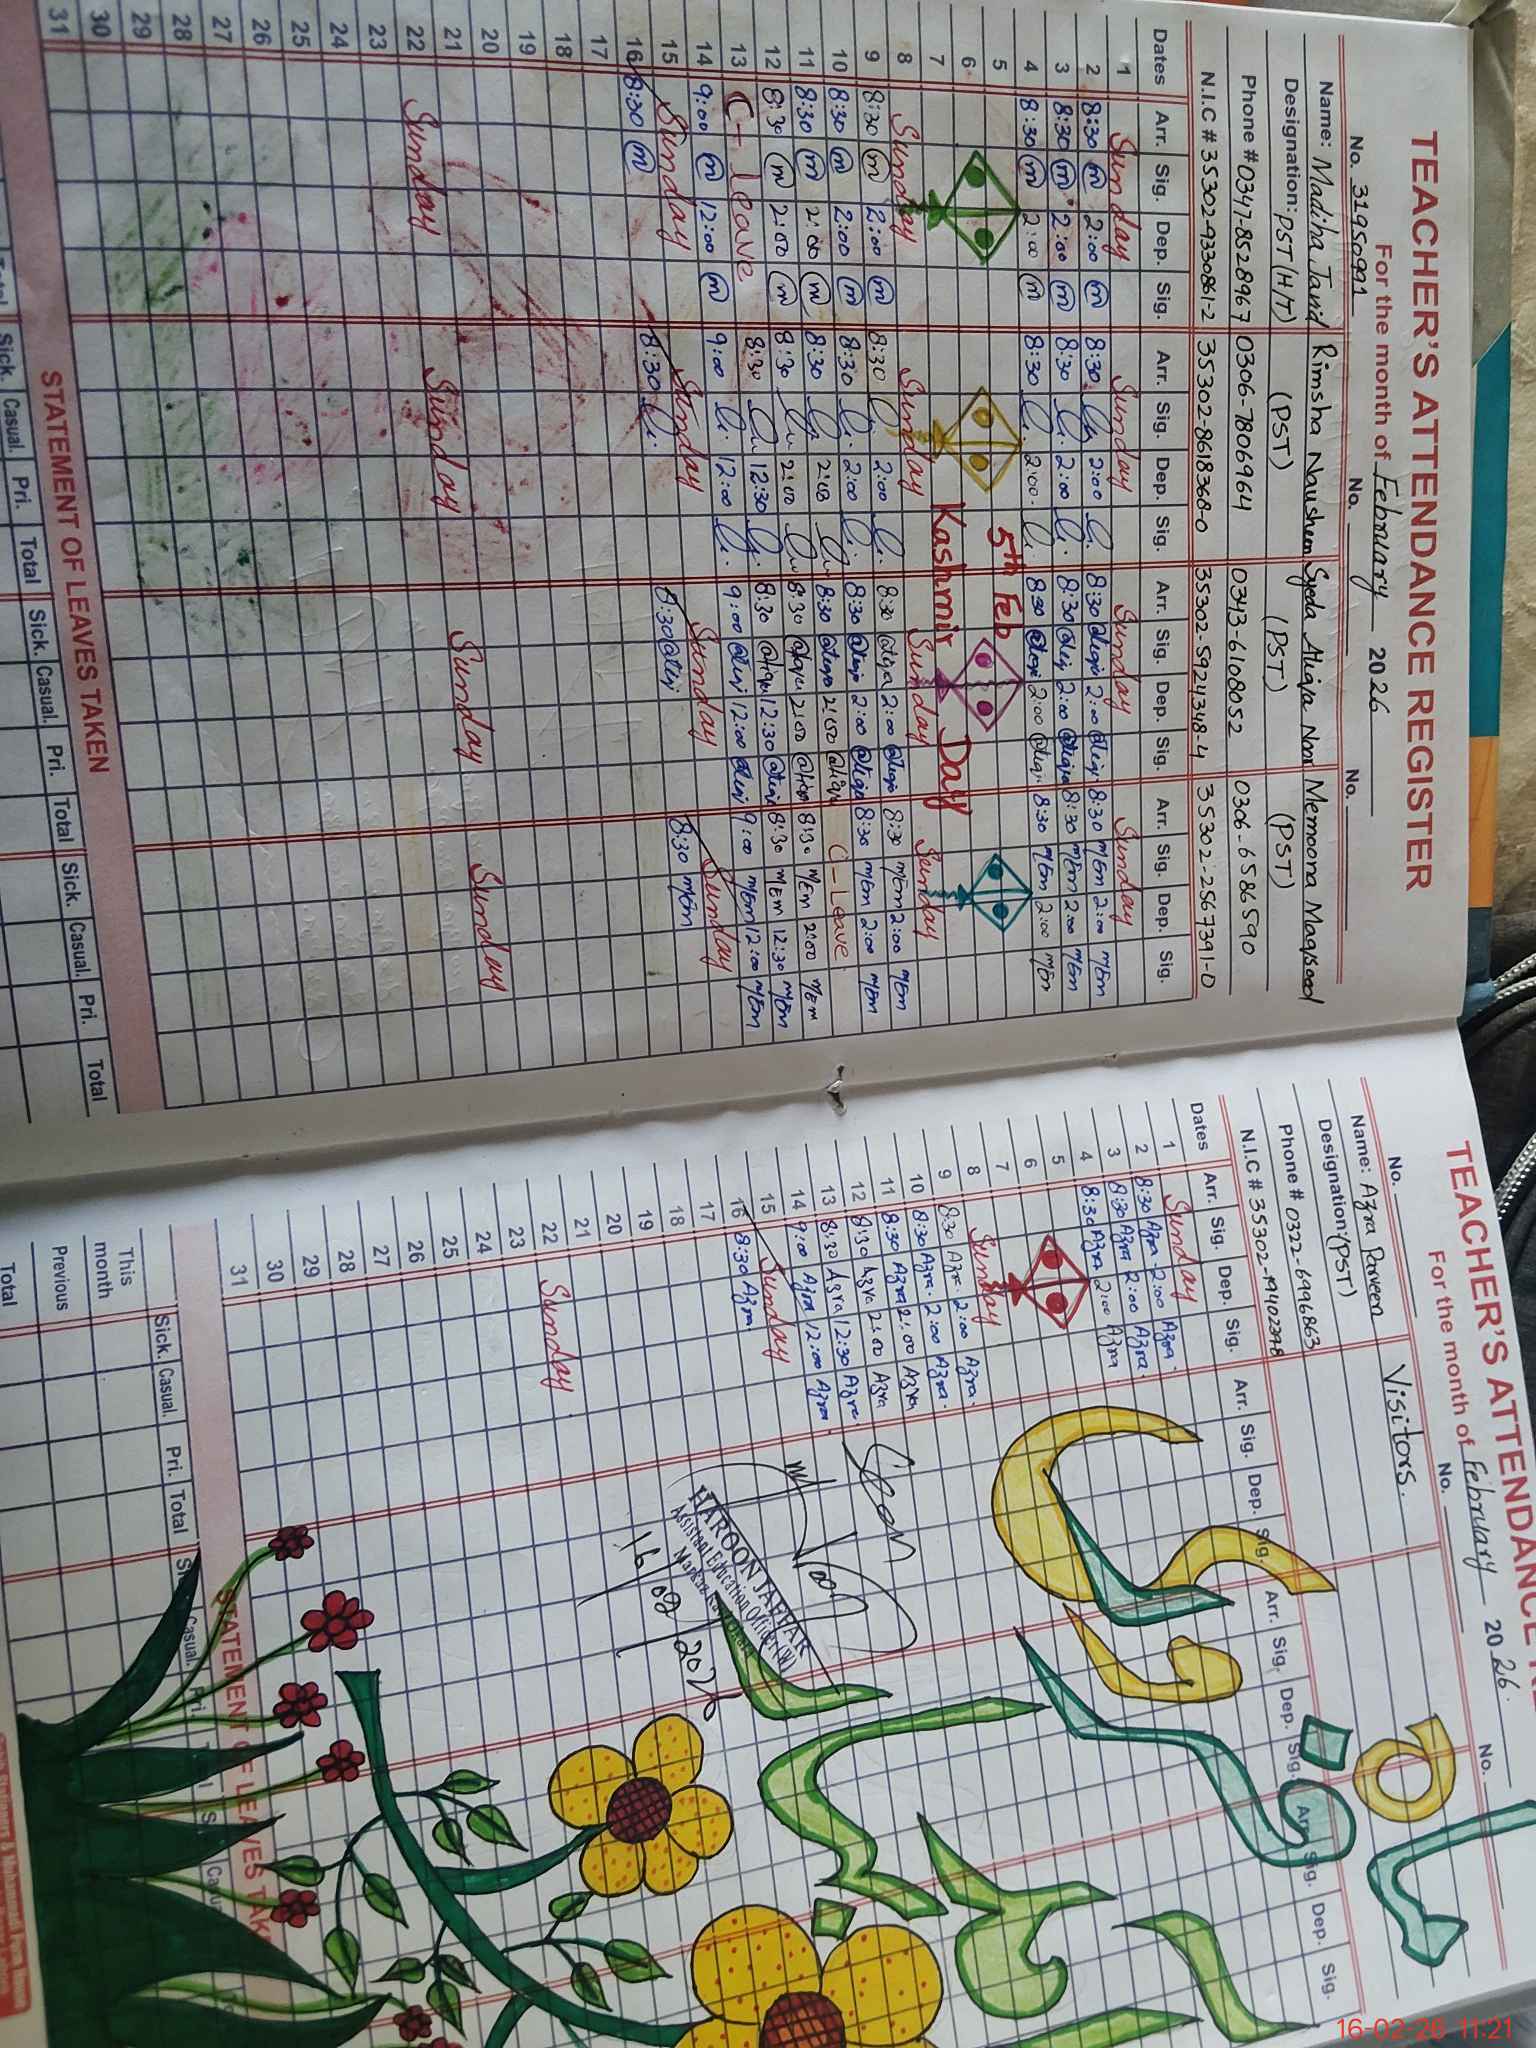 TEACHER'S ATTENDANCE REGISTER
For the month of February 2026
No. 31950991 No. No.
Name: Madiha Javid Rimsha Nausheen Syeda Atiqa Noor Memoona Maqsood
Designation: PST (H/T) (PST) (PST) (PST)
Phone # 0347-8528967 0306-7806964 0343-6108052 0306-6586590
N.I.C # 35302-9330861-2 35302-8618368-0 35302-5924348-4 35302-2567391-0
Dates Arr. Sig. Dep. Sig. Arr. Sig. Dep. Sig. Arr. Sig. Dep. Sig. Arr. Sig. Dep. Sig.
1 Sunday Sunday Sunday Sunday
2 8:30 m 2:00 m 8:30 2:00 8:30 Atiqa 2:00 Atiqa 8:30 MEM 2:00 MEM
3 8:30 m 2:00 m 8:30 2:00 8:30 Atiqa 2:00 Atiqa 8:30 MEM 2:00 MEM
4 8:30 m 2:00 m 8:30 2:00 8:30 Atiqa 2:00 Atiqa 8:30 MEM 2:00 MEM
5 5th Feb
6
7 Kashmir Day
8 Sunday Sunday Sunday Sunday
9 8:30 m 2:00 m 8:30 2:00 8:30 Atiqa 2:00 Atiqa 8:30 MEM 2:00 MEM
10 8:30 m 2:00 m 8:30 2:00 8:30 Atiqa 2:00 Atiqa 8:30 MEM 2:00 MEM
11 8:30 m 2:00 m 8:30 2:00 8:30 Atiqa 2:00 Atiqa C-Leave
12 8:30 m 2:00 m 8:30 2:00 8:30 Atiqa 2:00 Atiqa 8:30 MEM 2:00 MEM
13 C-leave 8:30 12:30 8:30 Atiqa 12:30 Atiqa 8:30 MEM 12:30 MEM
14 9:00 m 12:00 m 9:00 12:00 9:00 Atiqa 12:00 Atiqa 9:00 MEM 12:00 MEM
15 Sunday Sunday Sunday Sunday
16 8:30 m 8:30 8:30 Atiqa 8:30 MEM
17
18
19
20
21
22 Sunday Sunday Sunday Sunday
23
24
25
26
27
28
29
30
31
STATEMENT OF LEAVES TAKEN
Sick. Casual. Pri. Total Sick. Casual. Pri. Total Sick. Casual. Pri. Total
Total
TEACHER'S ATTENDANCE
For the month of February 2026.
No. No. No.
Name: Azra Parveen Visitors.
Designation: (PST)
Phone # 0322-6996863
N.I.C # 35302-
Dates Arr. Sig. Dep. Sig. Arr. Sig. Dep. Sig. Arr. Sig. Dep. Sig. Arr. Sig. Dep. Sig.
1 Sunday
2 8:30 Azra. 2:00 Azra.
3 8:30 Azra 2:00 Azra.
4 8:30 Azra 2:00 Azra.
5
6
7
8 Sunday
9 8:30 Azra. 2:00 Azra.
10 8:30 Azra. 2:00 Azra.
11 8:30 Azra 2:00 Azra
12 8:30 Azra 2:00 Azra
13 8:30 Azra 12:30 Azra.
14 9:00 Azra 12:00 Azra
15 Sunday
16 8:30 Azra.
17
18
19
20
21
22 Sunday
23
24
25
26
27
28
29
30
31
HAROON JAFFAR
Assistant Education Officer
16/02/2026
STATEMENT OF LEAVES TAK
Sick. Casual. Pri. Total Casual. Pri.
This month
Previous
Total
16-02-26 11:21